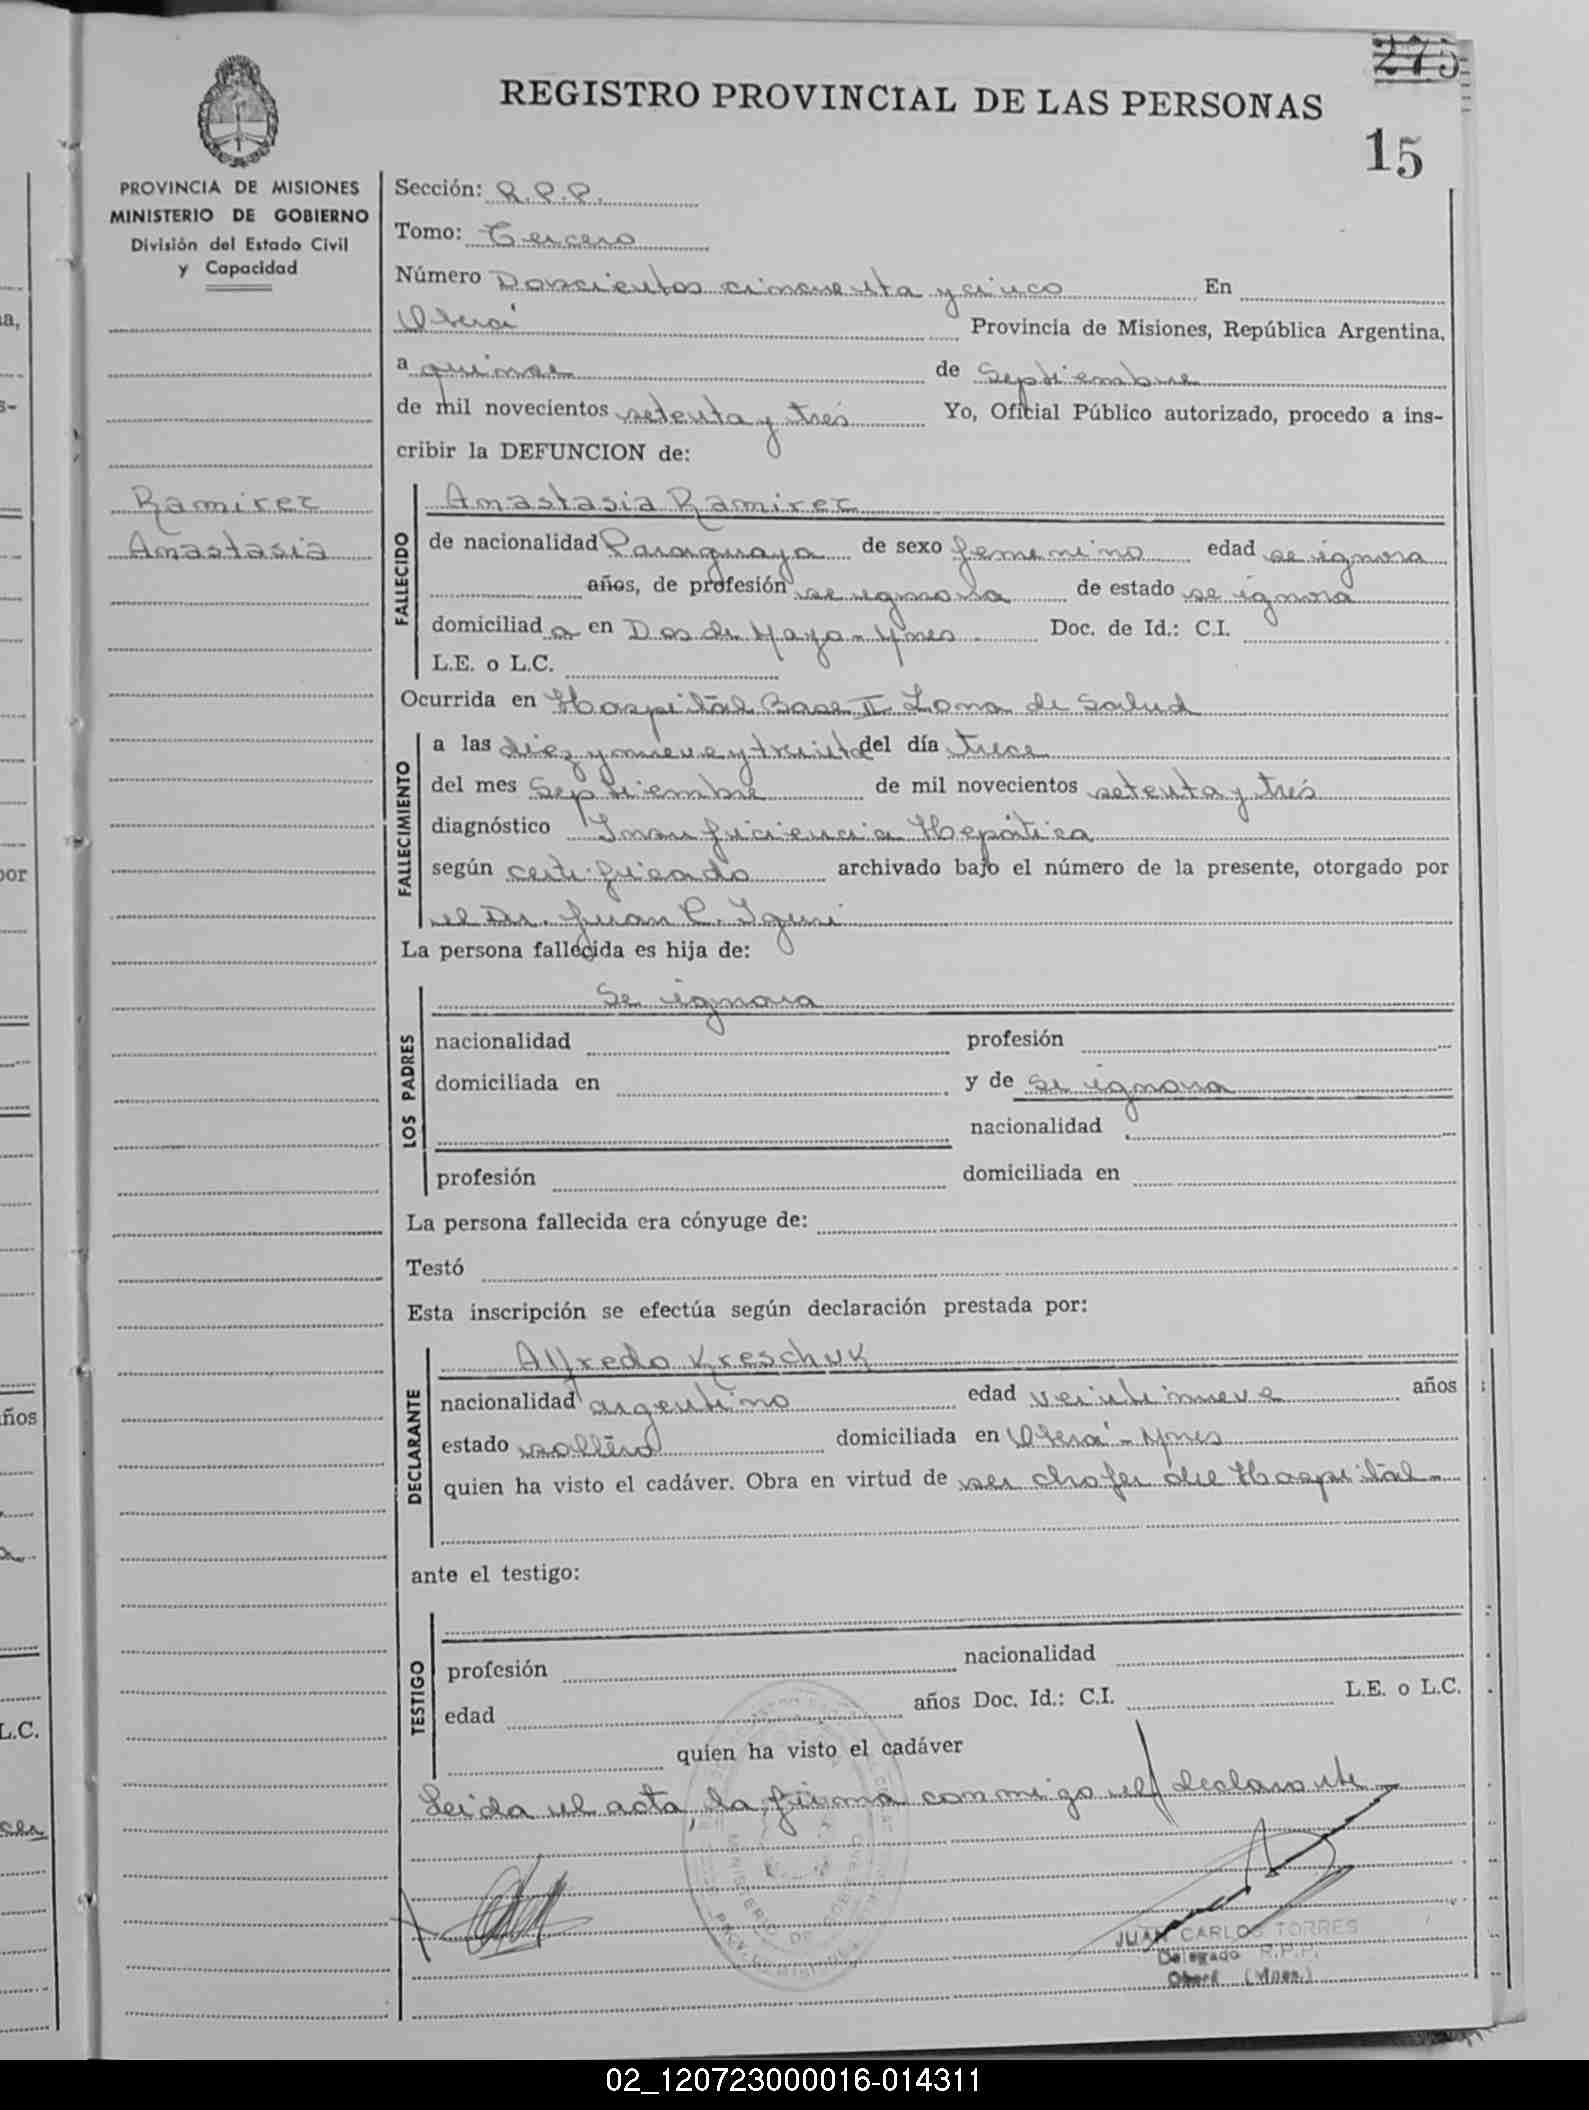 275
REGISTRO PROVINCIAL DE LAS PERSONAS
15
PROVINCIA DE MISIONES
MINISTERIO DE GOBIERNO
División del Estado Civil
y Capacidad
Sección: R.P.P.
Tomo: Tercero
Número Doscientos cincuenta y cinco En
Oberá Provincia de Misiones, República Argentina,
a quince de Septiembre
de mil novecientos setenta y trés Yo, Oficial Público autorizado, procedo a ins-
cribir la DEFUNCION de:
Ramirez
Anastasia
FALLECIDO
Anastasia Ramirez
de nacionalidad Paraguaya de sexo femenino edad se ignora
años, de profesión se ignora de estado se ignora
domiciliad a en Dos de Mayo - Mnes Doc. de Id.: C.I.
L.E. o L.C.
Ocurrida en Hospital Base II Zona de Salud
FALLECIMIENTO
a las diez y nueve y treinta del día trece
del mes Septiembre de mil novecientos setenta y trés
diagnóstico Insuficiencia Hepática
según certificado archivado bajo el número de la presente, otorgado por
el Dr. Juan C.
La persona fallecida es hija de:
LOS PADRES
Se ignora
nacionalidad profesión
domiciliada en y de se ignora
nacionalidad
profesión domiciliada en
La persona fallecida era cónyuge de:
Testó
Esta inscripción se efectúa según declaración prestada por:
DECLARANTE
Alfredo Kreschuk
nacionalidad argentino edad veintinueve años
estado soltero domiciliada en Oberá - Mnes
quien ha visto el cadáver. Obra en virtud de ser chofer del Hospital
ante el testigo:
TESTIGO
profesión nacionalidad
edad años Doc. Id.: C.I. L.E. o L.C.
quien ha visto el cadáver
Leida el acta, la firma conmigo el declarante
MINISTERIO DE GOBIERNO
JUAN CARLOS TORRES
Delegado R.P.P.
Oberá (Mnes.)
a,
s-
por
ños
L.C.
02_120723000016-014311